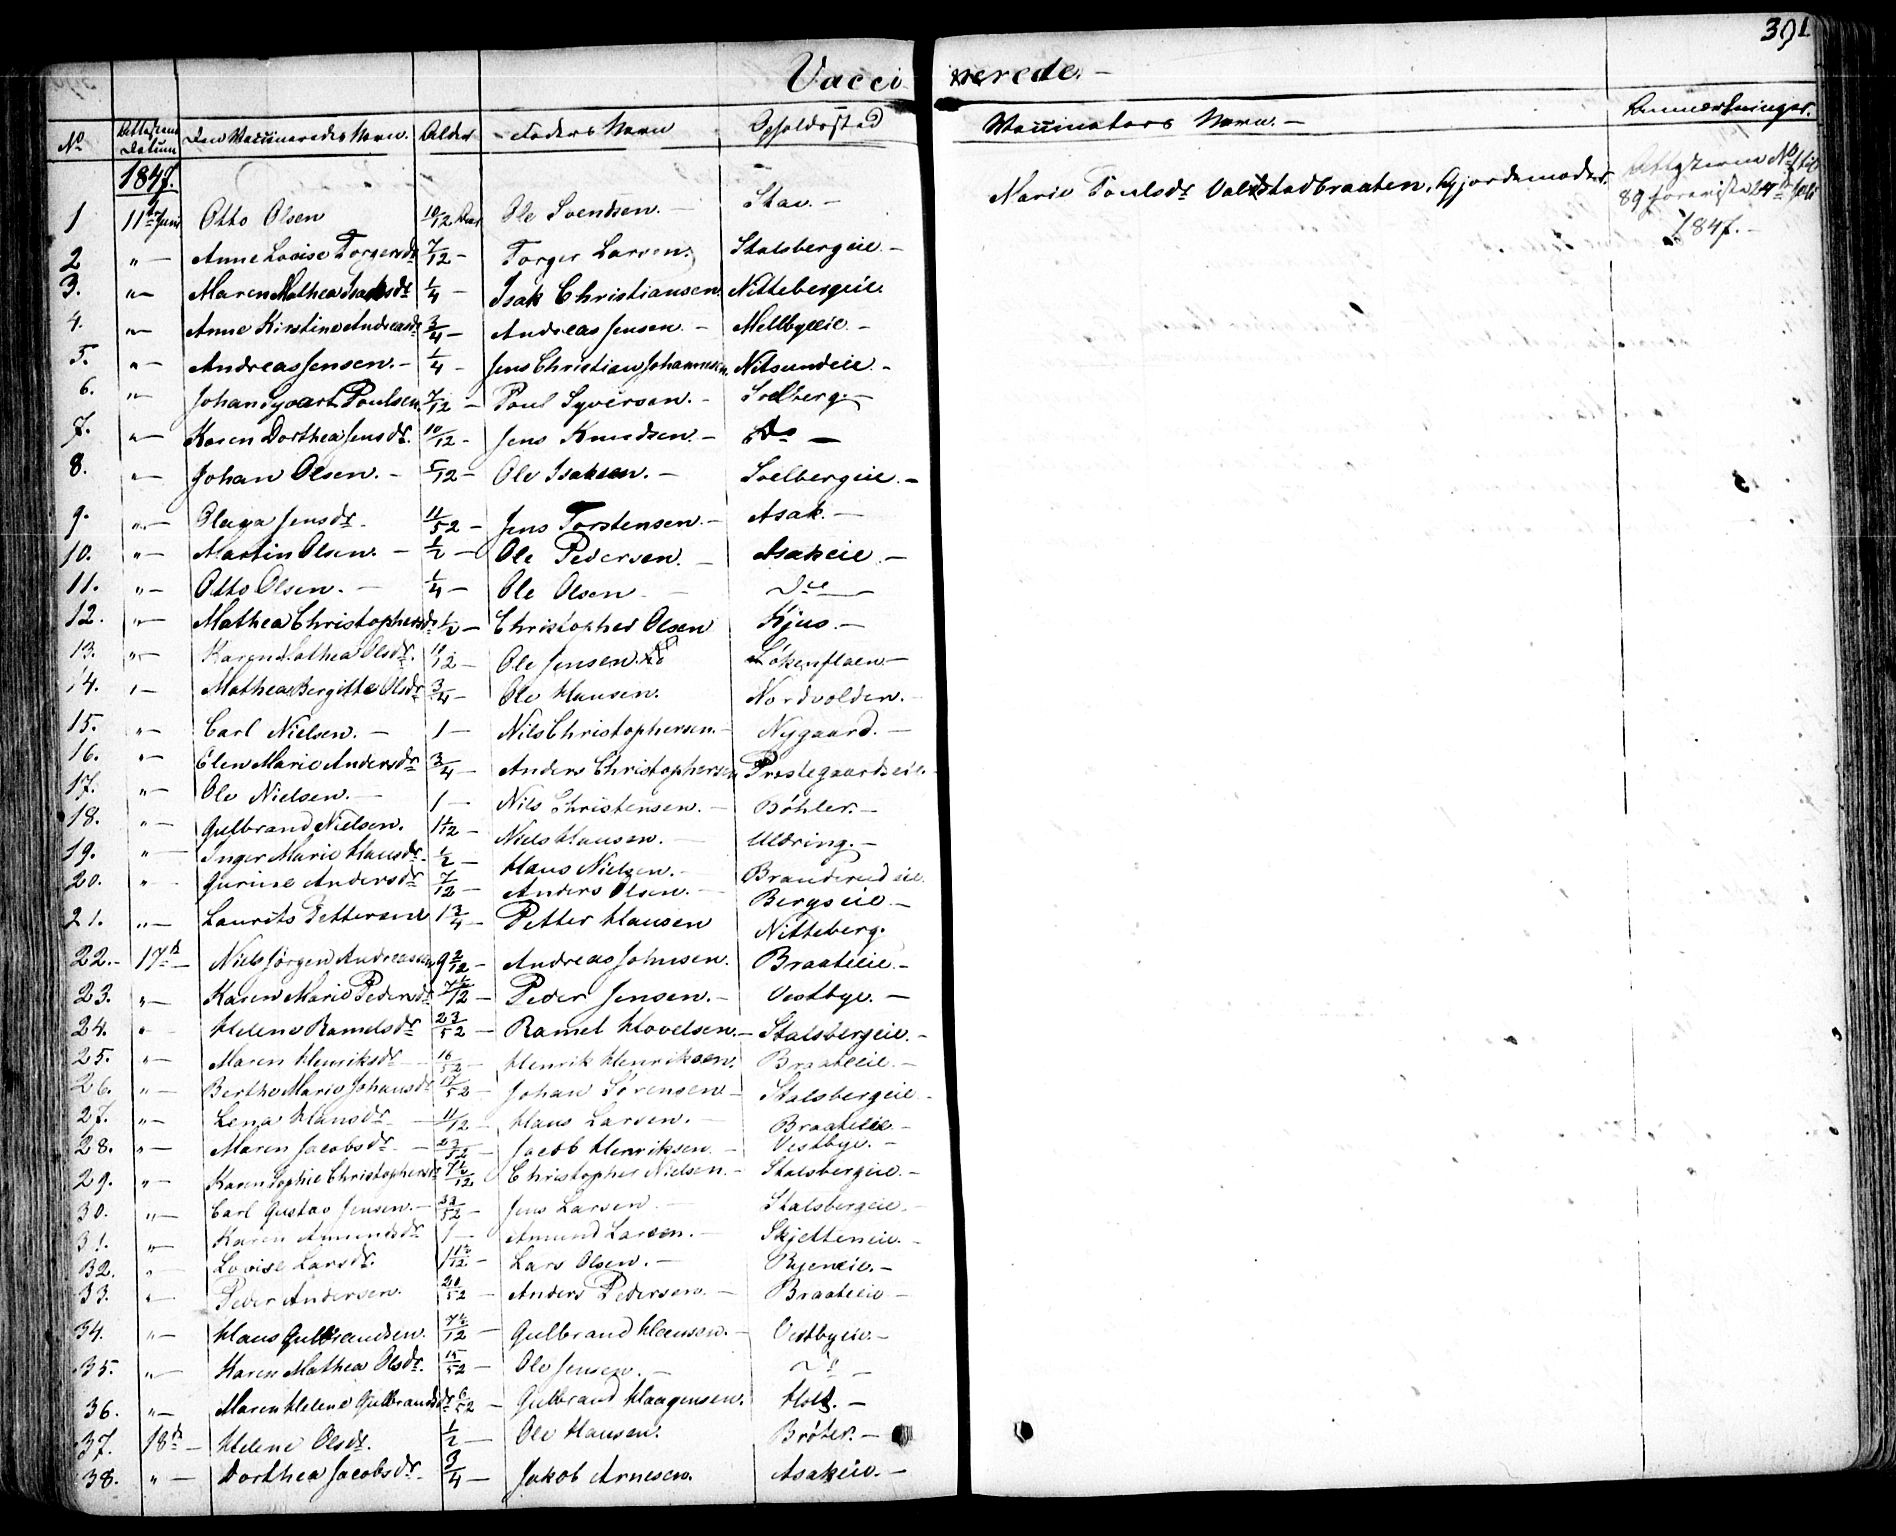 391
Vaccinerede. -
No | Attestens Datum | Den Vaccineredes Navn. | Alder | Faders Navn | Opholdssted | Vaccinators Navn. - | Anmærkninger.
1847.
1 | 11te Juni | Otto Olsen | 10/12 Aar | Ole Svendsen. - | Stav. - | Marie Poulsdr Valstadbraaten, Gjordemoder. | Attesterne No 1 til
89 foreviste 24de
1847. -
2 | " - | Anne Lovise Torgersdr | 7/12 - | Torger Larsen. | Stalsbergeie. -
3. | " - | Maren Mathea Isaksdr | 1/4 - | Isak Christiansen. | Nittebergeie.
4. | " - | Anne Kirstine Andreasdr | 3/4 - | Andreas Jensen. - | Mellbyeeie. -
5. | " - | Andreas Jensen. - | 1/4 - | Jens Christian Johannesen. | Nitsundeie. -
6. | " - | Johan Syvart Poulsen. | 7/12 - | Poul Syversen. - | Soelberg. -
7. | " - | Karen Dorthea Jensdr. | 10/12 - | Jens Knudsen. - | Do -
8. | " - | Johan Olsen. - | 5/12 - | Ole Isaksen. - | Soelbergeie. -
9. | " - | Olaga Jensdr. | 11/52 - | Jens Torstensen. - | Asak. -
10. | " - | Martin Olsen. - | 1/2 - | Ole Pedersen. - | Asakeie. -
11. | " - | Otto Olsen. - | 1/4 - | Ole Olsen - | Do
12. | " - | Mathea Christophersdr | 1/2 - | Christopher Olsen | Kjus. -
13. | " - | Karen Mathea Olsdr. | 10/12 - | Ole Jensen. | Lökenflaen -
14. | " - | Mathea Bergitte Olsdr | 3/4 - | Ole Hansen. | Nordvolden. -
15. | " - | Carl Nielsen. - | 1 - | Nils Christophersen. - | Nygaard. -
16. | " - | Elen Marie Andersdr | 3/4 - | Anders Christophersen | Præstegaardseie. -
17. | " - | Ole Nielsen. - | 1 - | Nils Christensen. - | Böhler. -
18. | " - | Gulbrand Nielsen. | 1 1/12 - | Niels Hansen. - | Uldring. -
19. | " - | Inger Marie Hansdr. | 1/2 - | Hans Nielsen. - | Branderud eie.
20. | " - | Gurine Andersdr | 7/12 - | Anders Olsen. - | Bergseie. -
21. | " - | Laurits Pettersen | 1 3/4 - | Petter Hansen | Nitteberg.
22. - | 17de - | Niels Jörgen Andreasen | 9 2/12 - | Andreas Johnsen. | Braateeie. -
23. | " - | Karen Marie Pedersdr | 7 1/2/12 - | Peder Jensen. - | Vestbye. -
24. | " - | Helene Ramelsdr | 23/52 - | Ramel Hovelsen. - | Stalsbergeie. -
25. | " - | Maren Henriksdr - | 16/52 - | Henrik Henriksen. | Braateeie. -
26. | " - | Berthe Marie Johansdr | 17/52 - | Johan Sörensen - | Stalsbergeie -
27. | " - | Lena Hansdr. - | 11/12 - | Hans Larsen. - | Braateeie. -
28. | " - | Maren Jacobsdr - | 23/52 - | Jacob Henriksen. - | Vestbye. -
29. | " - | Karen Sophie Christophersdr | 7 1/2/12 - | Christopher Nielsen. - | Stalsbergeie. -
30. | " - | Carl Gustav Jensen. - | 33/52 - | Jens Larsen - | Stalsbergeie. -
31. | " - | Karen Amundsdr | 1 - | Amund Larsen. - | Skjetteneie. -
32. | " - | Lovise Larsdr. | 1 1 1/2/12 - | Lars Olsen. - | Ryeneie. -
33. | " - | Peder Andersen. | 20/52 - | Anders Pedersen. - | Braateeie -
34. | " - | Hans Gulbrandsen. | 7 1/2/12 - | Gulbrand Hansen. - | Vestbyeie. -
35. | " - | Karen Mathea Olsdr. | 15/52 - | Ole Jensen. - | Do -
36. | " - | Maren Helene Gulbrandsdr | 6/52 - | Gulbrand Haagensen. | Holt. -
37. | 18de - | Helene Olsdr. | 1/2 - | Ole Hansen. | Bröter. -
38. | " - | Dorthea Jacobsdr. | 3/4 - | Jakob Arnesen. | Asakeie. -